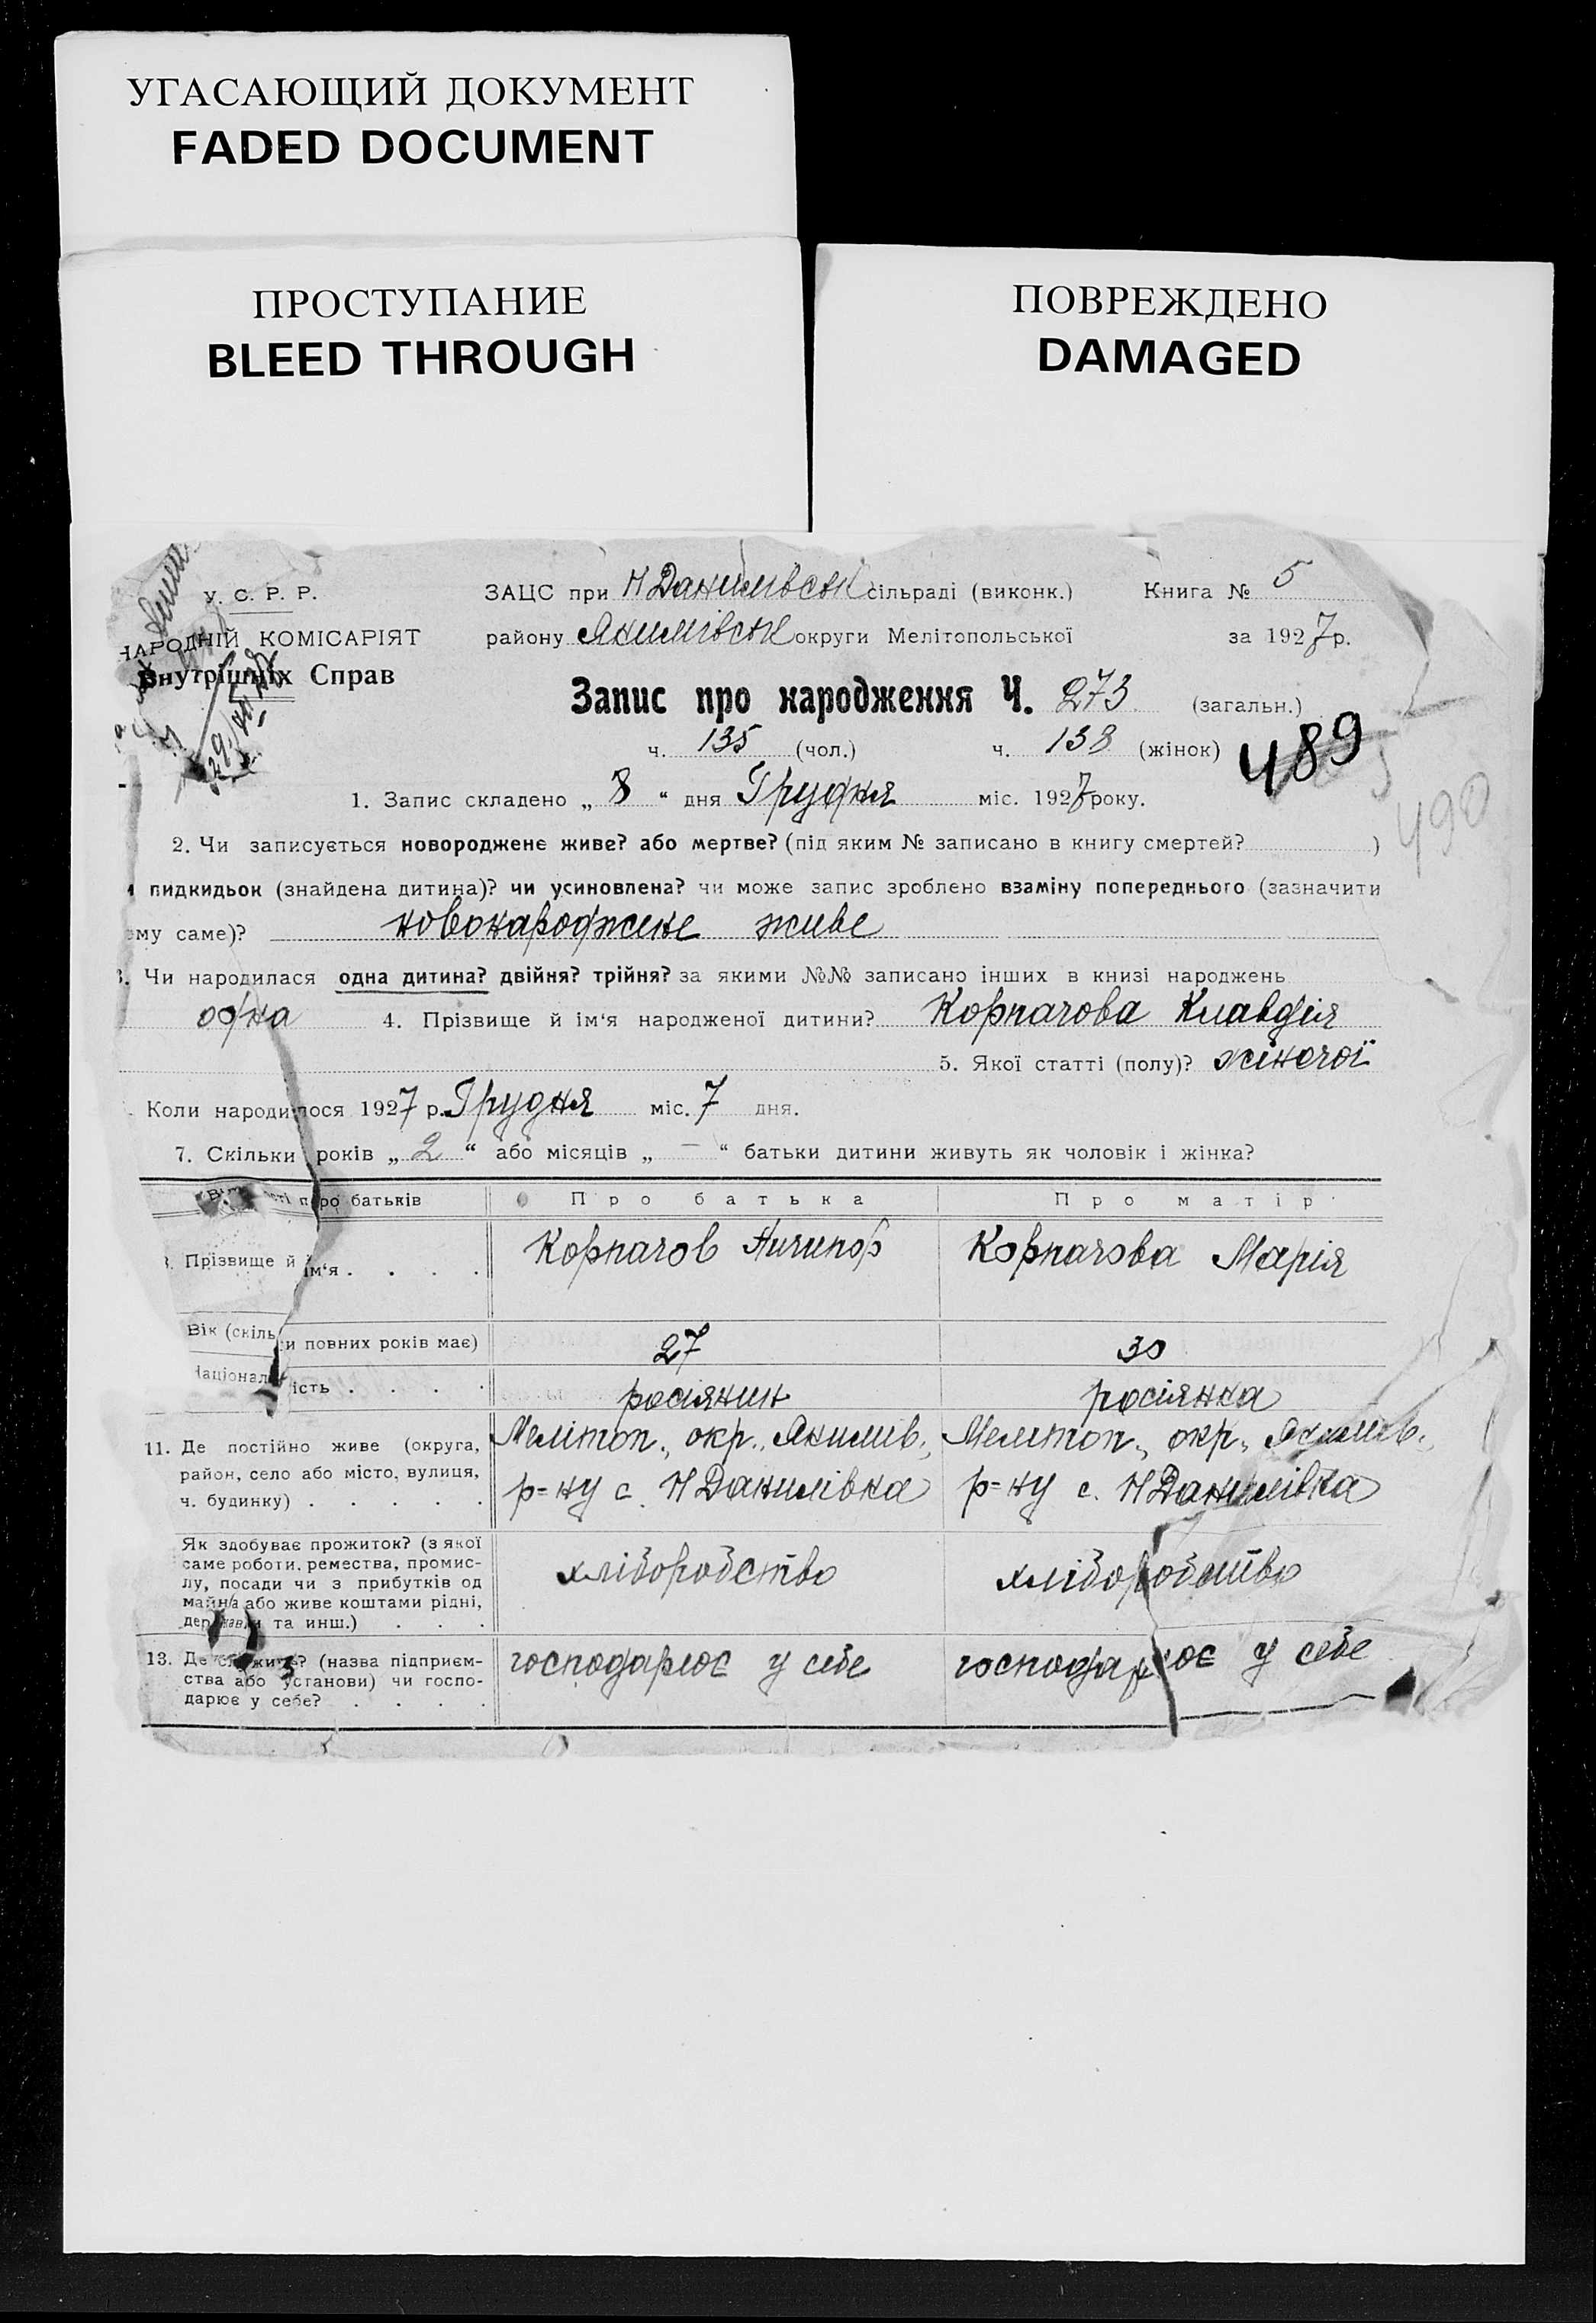 УГАСАЮЩИЙ ДОКУМЕНТ
FADED DOCUMENT
ПРОСТУПАНИЕ
BLEED THROUGH
ПОВРЕЖДЕНО
DAMAGED
У. С. Р. Р.
НАРОДНІЙ КОМІСАРІЯТ
Внутрішніх Справ
ЗАЦС при Н Данилівськ сільраді (виконк.) Книга № 5
району Якимівськ округи Мелітопольської за 1927 р.
Запис про народження Ч. 273 (загальн.)
ч. 135 (чол.) ч. 138 (жінок)
489
490
1. Запис складено „ 8 “ дня Грудня міс. 1927 року.
2. Чи записується новороджене живе? або мертве? (під яким № записано в книгу смертей? )
пидкидьок (знайдена дитина)? чи усиновлена? чи може запис зроблено взаміну попереднього (зазначити
ому саме)? новонароджене живе
3. Чи народилася одна дитина? двійня? трійня? за якими №№ записано інших в книзі народжень
одна 4. Прізвище й ім‘я народженої дитини? Корпачова Клавдія
5. Якої статті (полу)? жіночої
Коли народилося 1927 р. Грудня міс. 7 дня.
7. Скільки років „ 2 “ або місяців „ — “ батьки дитини живуть як чоловік і жінка?
про батьків Про батька Про матір
Прізвище й ім‘я . . . . Корпачов Ничипор Корпачова Марія
Вік (скільки повних років має) 27 30
Національність . . . . росіянин росіянка
11. Де постійно живе (округа, район, село або місто, вулиця, ч. будинку) . . . . .
Меліт­оп., окр., Якимів., р=ну с. Н Данилівка
Мелітоп., окр., Якимів., р=ну с. Н Данилівка
Як здобуває прожиток? (з якої
саме роботи, ремества, промис-
лу, посади чи з прибутків од
майна або живе коштами рідні,
держави та инш.) . . .
хлібородство хлібородство
13. Де служить? (назва підприєм-
ства або установи) чи госпо-
дарює у себе? . . . .
господарює у себе господарює у себе